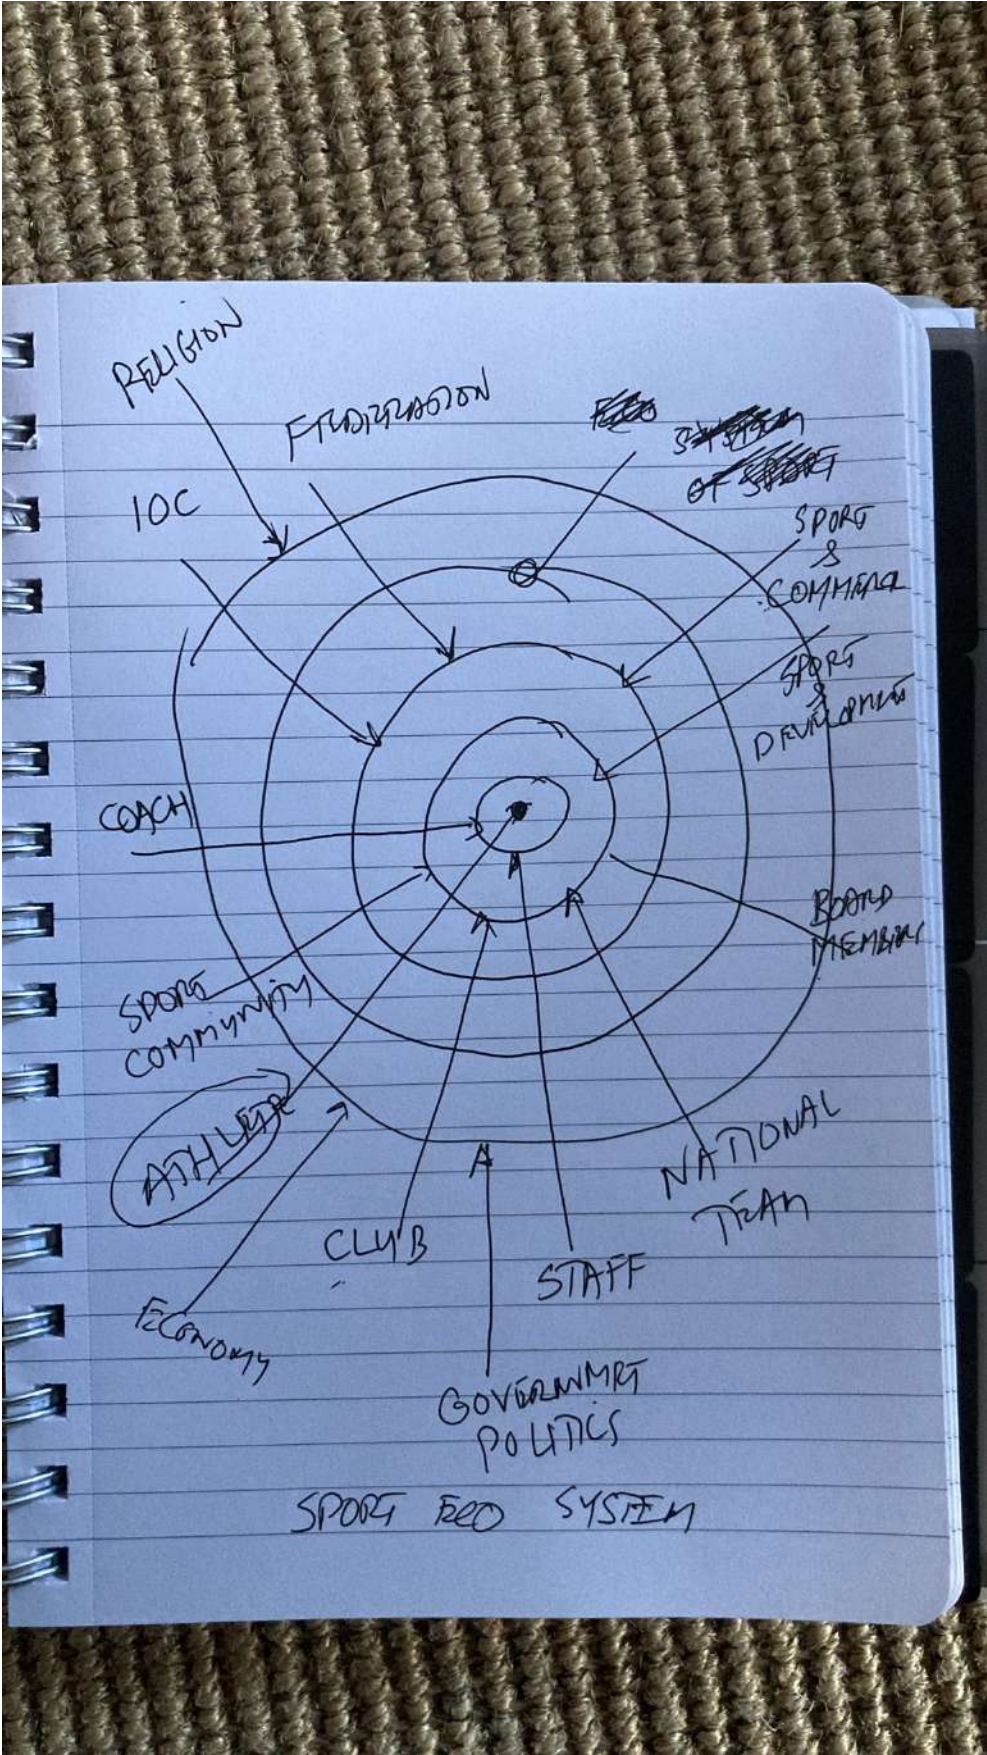 RELIGION
FEDERATION
IOC
ECO
SYSTEM
OF SPORT
SPORT
&
COMMERCE
SPORT
&
DEVELOPMENT
COACH
BOARD
MEMBERS
SPORT
COMMUNITY
ATHLETE
NATIONAL
TEAM
CLUB
STAFF
ECONOMY
GOVERNMENT
POLITICS
SPORT ECO SYSTEM